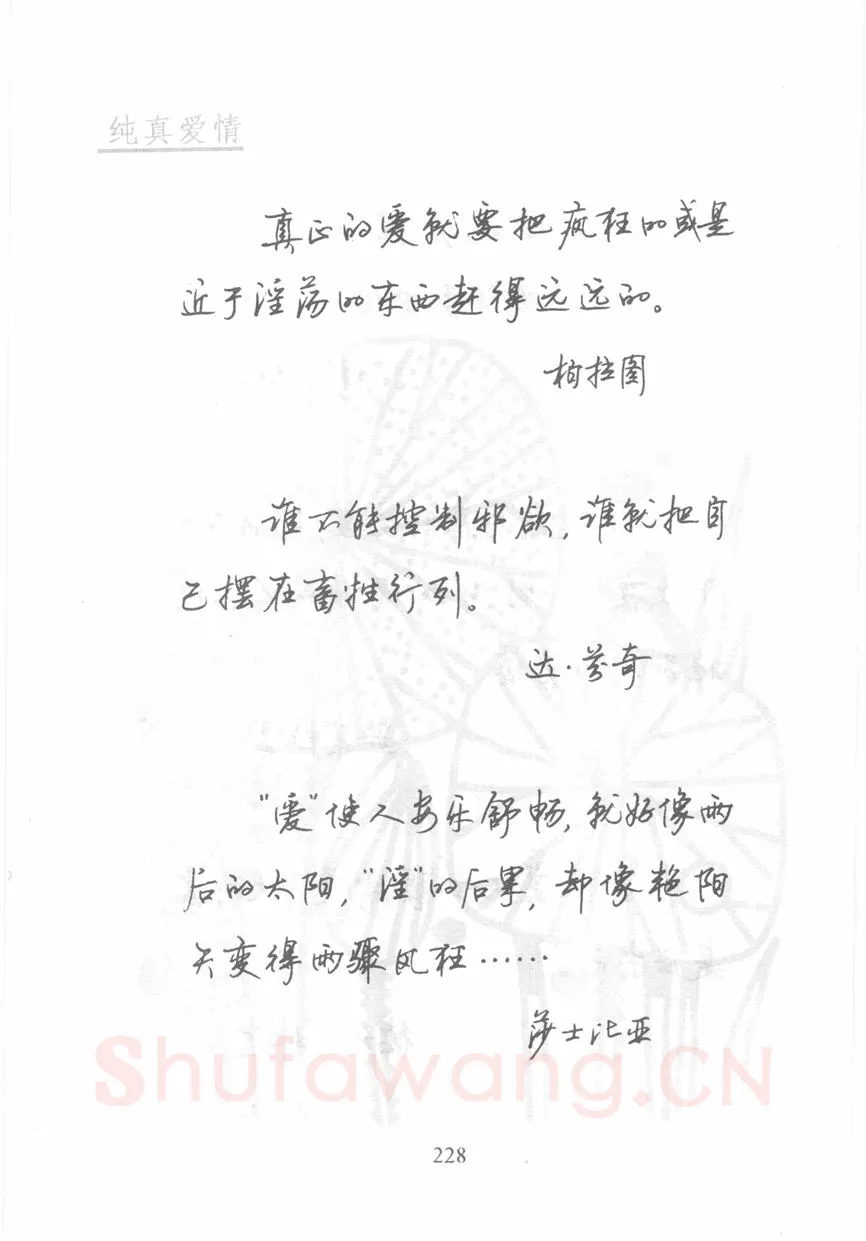 纯真爱情
真正的爱就要把疯狂的或是
近于淫荡的东西赶得远远的。
柏拉图
谁不能控制邪欲,谁就把自
己摆在畜牲行列。
达·芬奇
"爱"使人安乐舒畅,就好像雨
后的太阳,"淫"的后果,却像艳阳
天变得雨骤风狂……
莎士比亚
Shufawang.CN
228